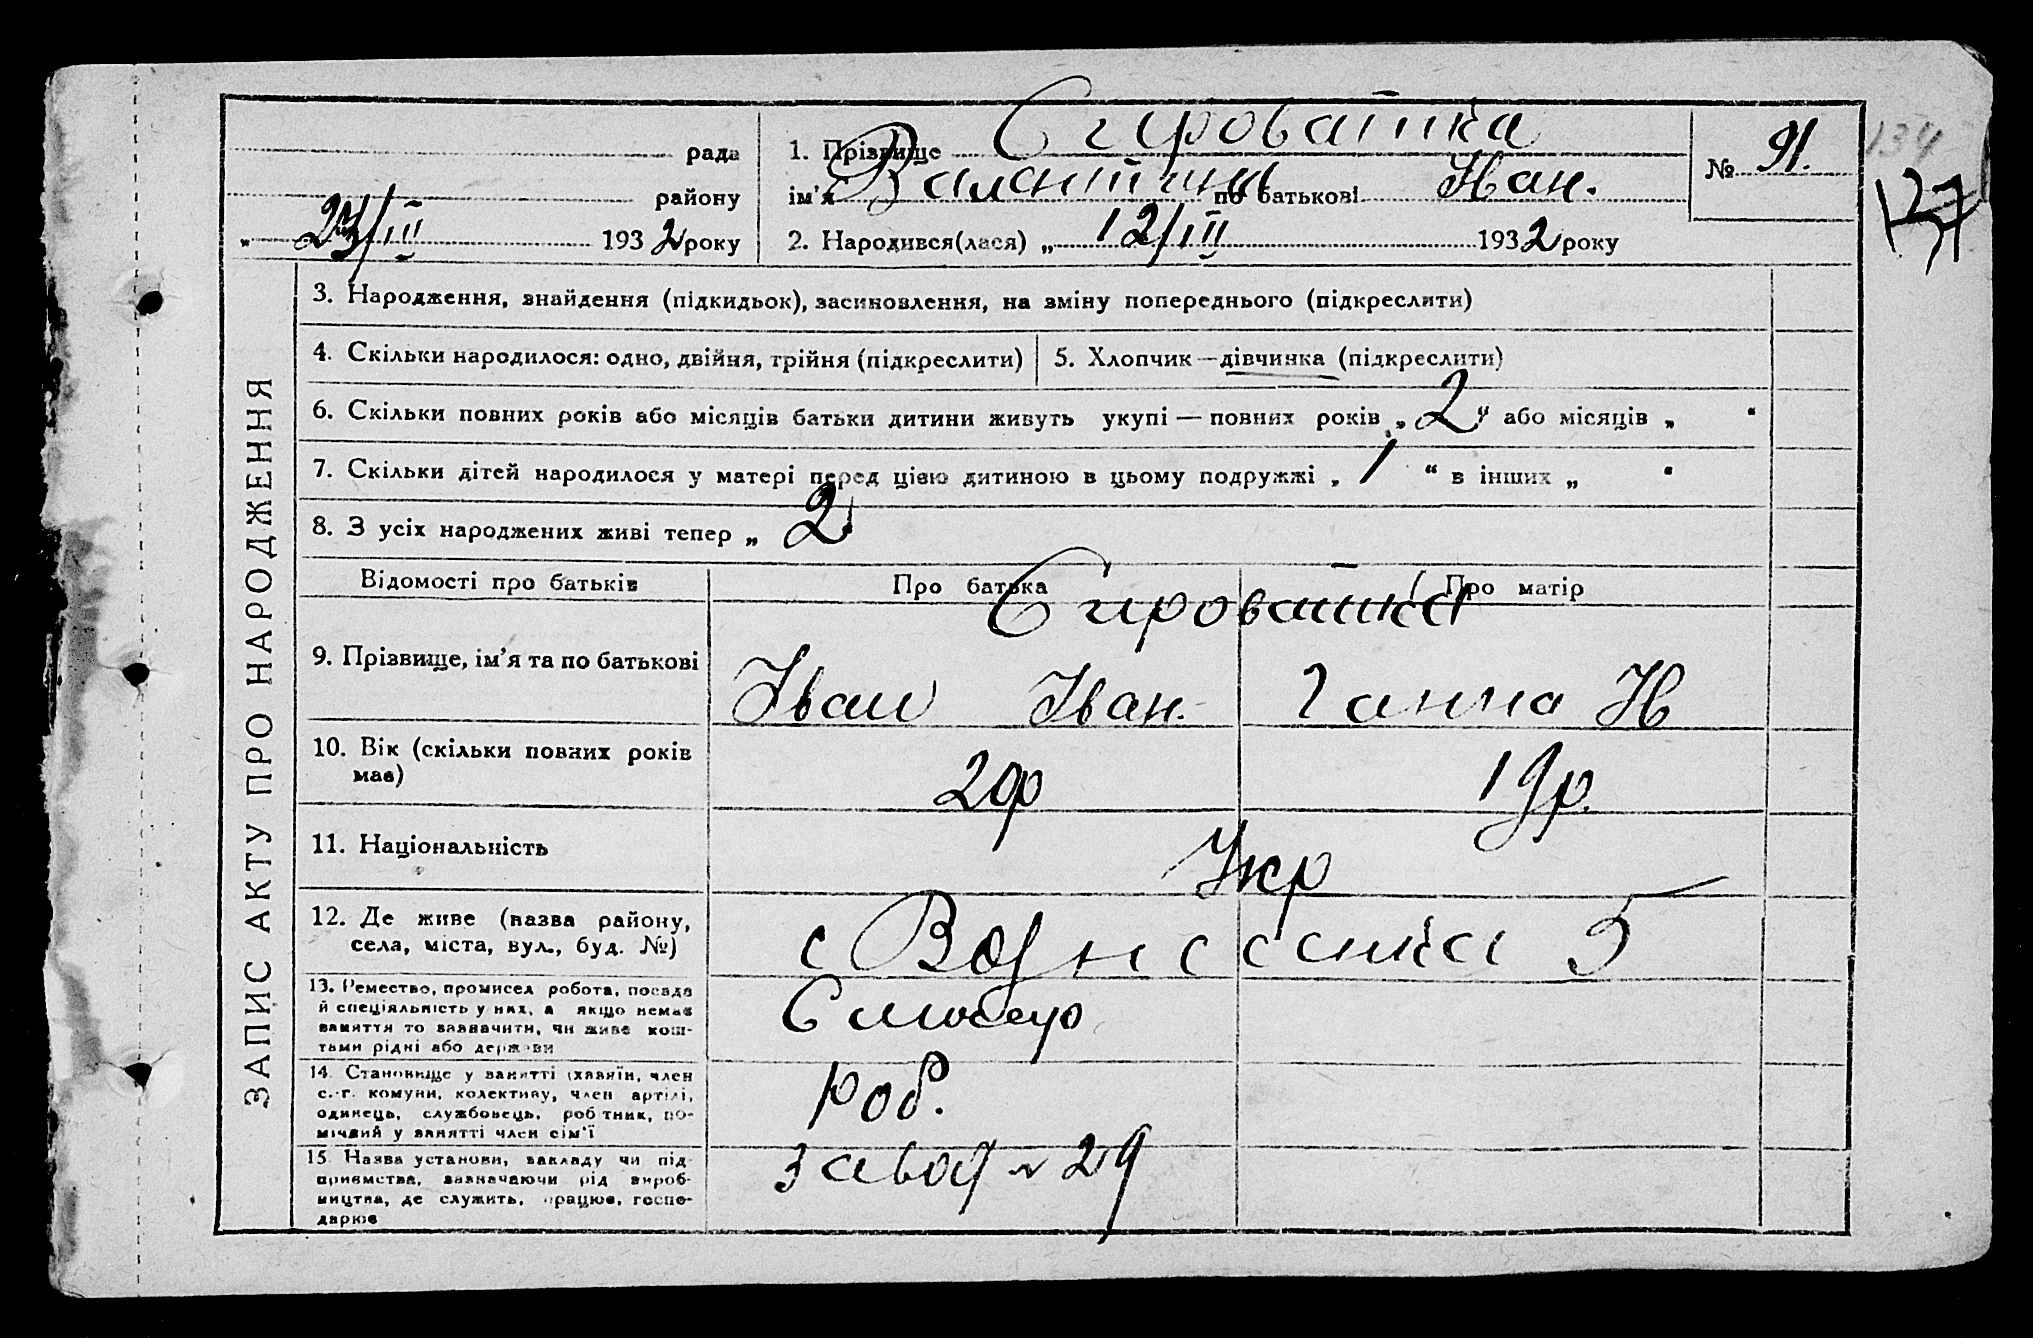 рада
району
„ 23/III 1932 року
1. Прізвище Сировайтка
ім'я Валентина по батькові Иван.
2. Народився(лася) „ 12/III 1932 року
№ 91.
134
ЗАПИС АКТУ ПРО НАРОДЖЕННЯ
3. Народження, знайдення (підкидьок), засиновлення, на зміну попереднього (підкреслити)
4. Скільки народилося: одно, двійня, трійня (підкреслити)
5. Хлопчик—дівчинка (підкреслити)
6. Скільки повних років або місяців батьки дитини живуть укупі — повних років „ 2 " або місяців „ "
7. Скільки дітей народилося у матері перед цією дитиною в цьому подружжі „ 1 " в інших „ "
8. З усіх народжених живі тепер „ 2
Відомості про батьків
Про батька
Про матір
9. Прізвище, ім'я та по батькові
Іван Іван.
Ганна Н
10. Вік (скільки повних років
має)
20р
19р.
11. Національність
Укр
12. Де живе (назва району,
села, міста, вул., буд. №)
с Вознесенка 5
13. Ремество, промисел робота, посада
й спеціяльність у них, а якщо немає
заняття то зазначити, чи живе кош-
тами рідні або держави
Слюсар
14. Становище у занятті (хазяїн, член
с.-г. комуни, колективу, член артілі,
одинець, службовець, робітник, по-
мічний у занятті член сім'ї
Роб.
15. Назва установи, закладу чи під-
приємства, зазначаючи рід вироб-
ництва, де служить, працює, госпо-
дарює
завод № 29